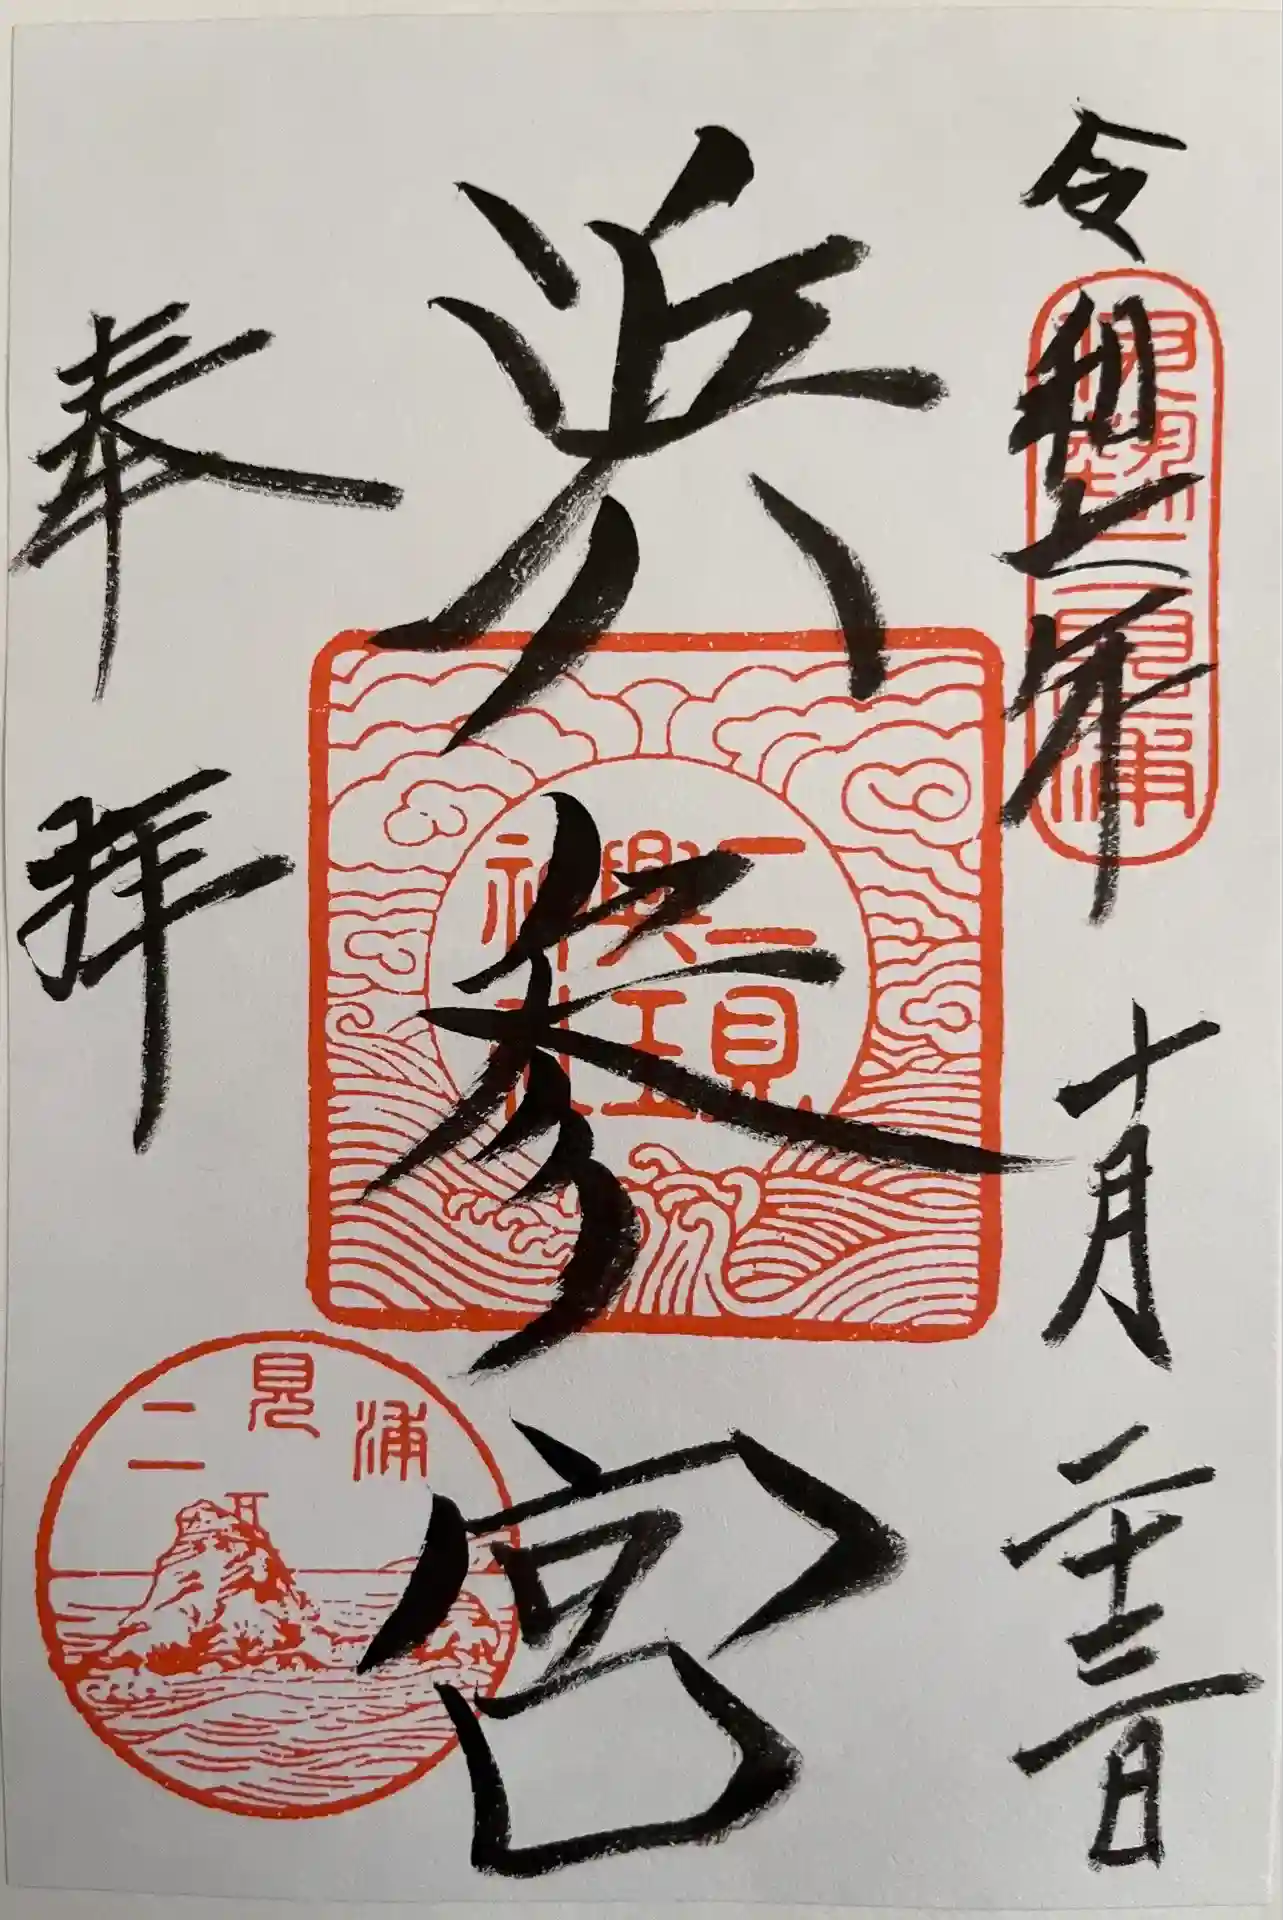 令和七年十月二十三日
伊勢二見浦
浜参宮
二見
興玉
神社
奉拝
二見浦